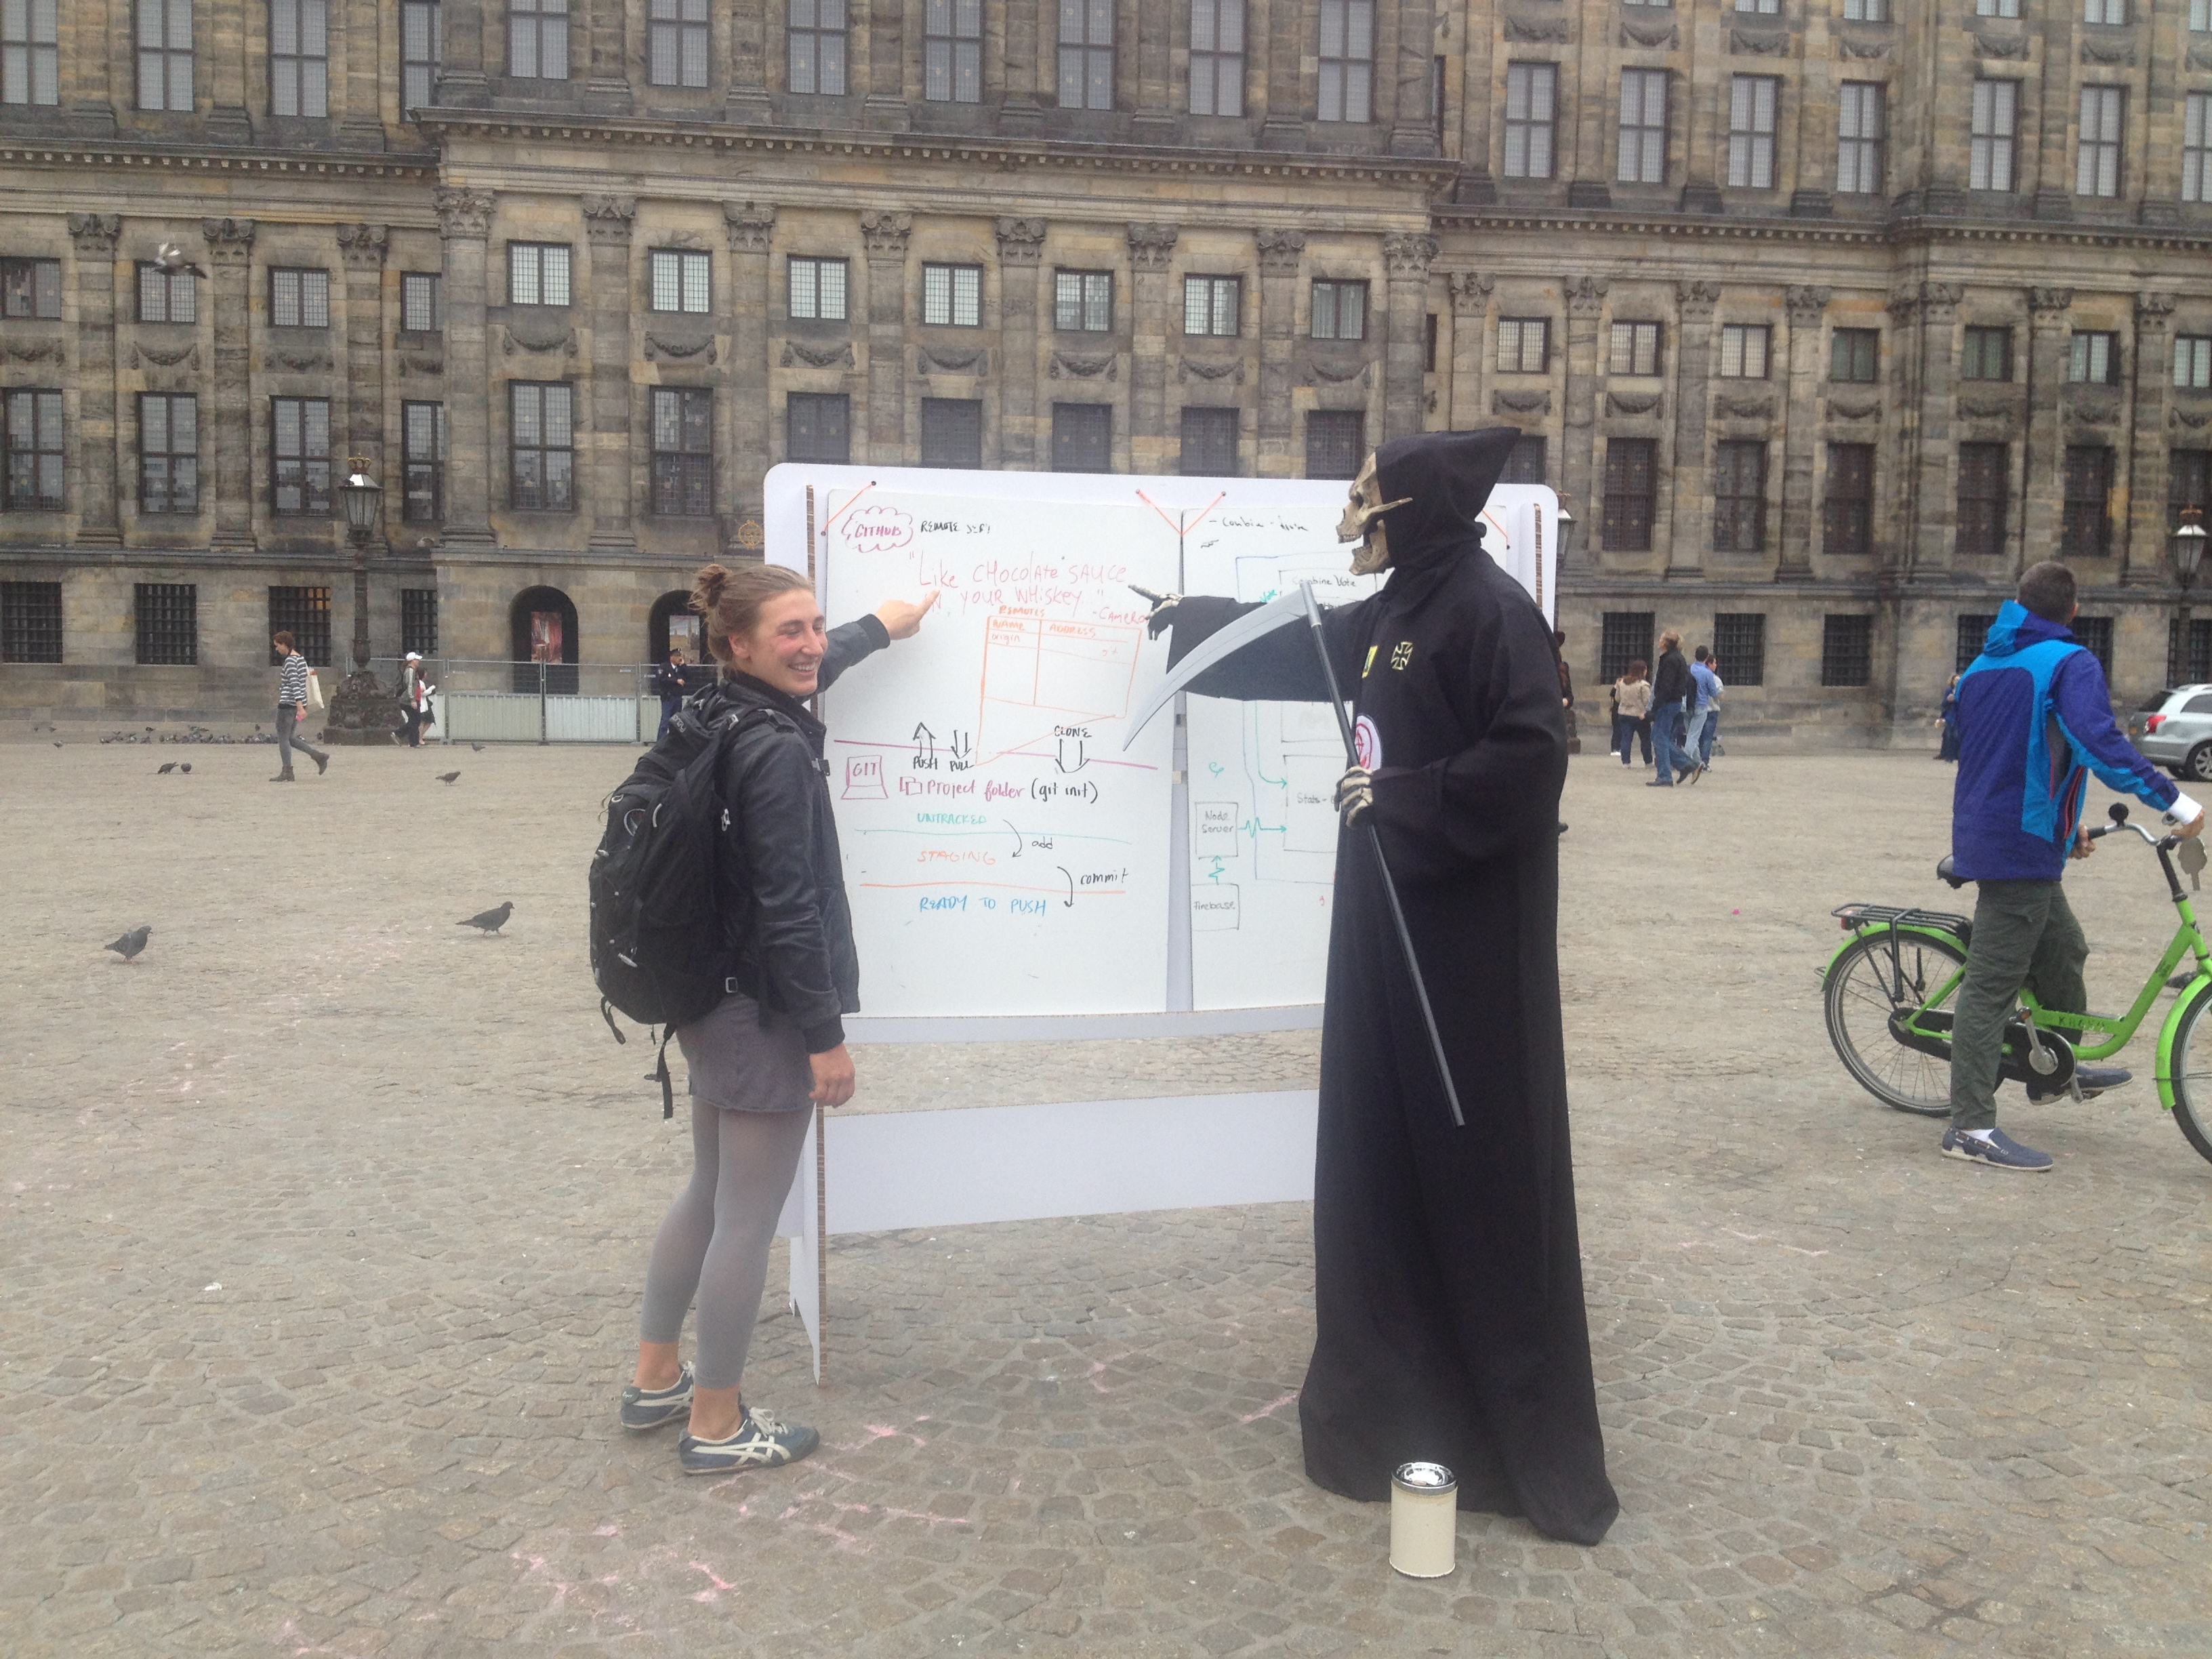 GITHUB
REMOTE
"Like CHocolate SAUCE
IN YOUR WHISKEY"
REMOTES
NAME ADDRESS
origin git
PUSH PULL CLONE
GIT
Project folder (git init)
UNTRACKED
add
STAGING
commit
READY TO PUSH
Combine Vote
Node
Server
Firebase